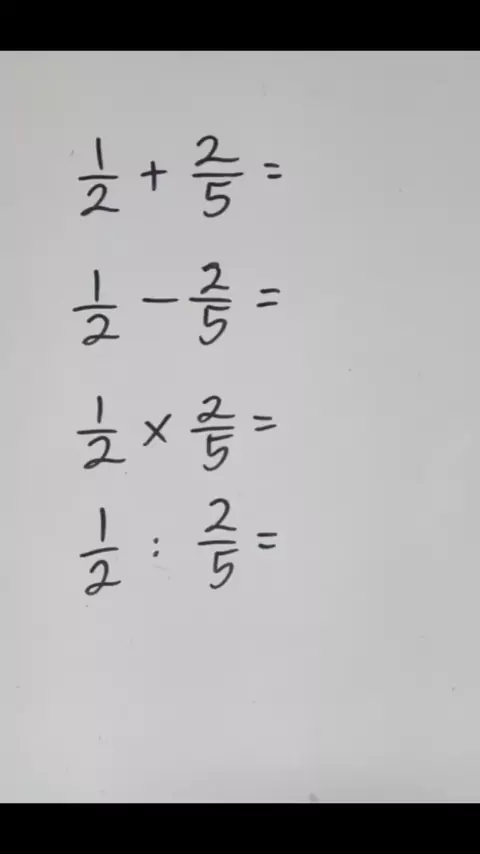 1/2 + 2/5 =
1/2 − 2/5 =
1/2 × 2/5 =
1/2 : 2/5 =